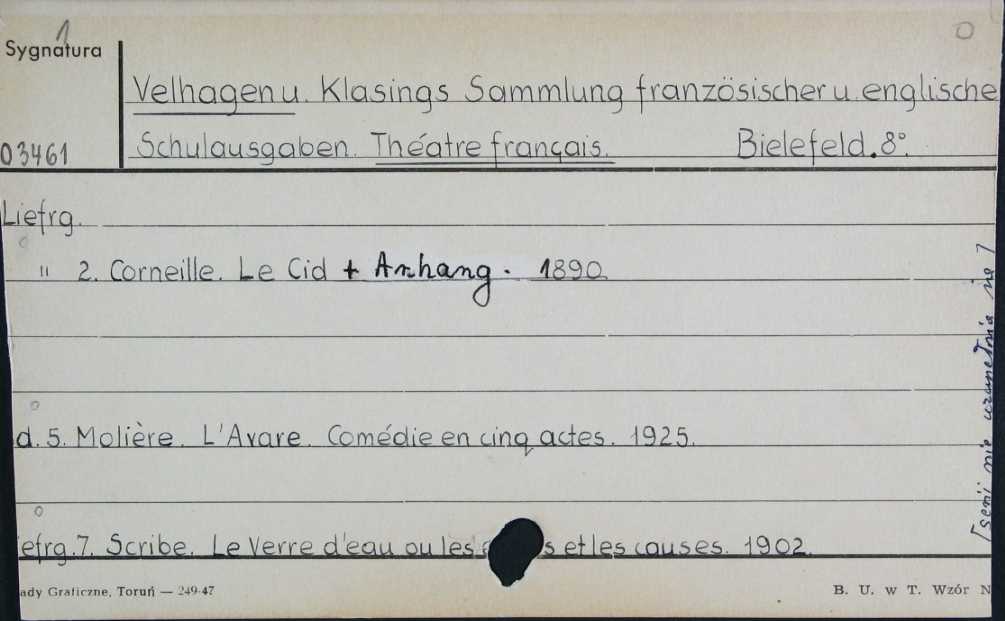 1
Sygnatura
Velhagen u. Klasings Sammlung französischer u. englische
03461
Schulausgaben. Théatre français. Bielefeld. 8°.
Liefrg.
" 2. Corneille. Le Cid + Anhang. 1890.
d. 5. Molière. L'Avare. Comédie en cinq actes. 1925.
efrg. 7. Scribe. Le Verre d'eau ou les s et les causes. 1902.
ady Graficzne, Toruń — 249-47
B. U. w T. Wzór N
[serii nie uzupełnia się]